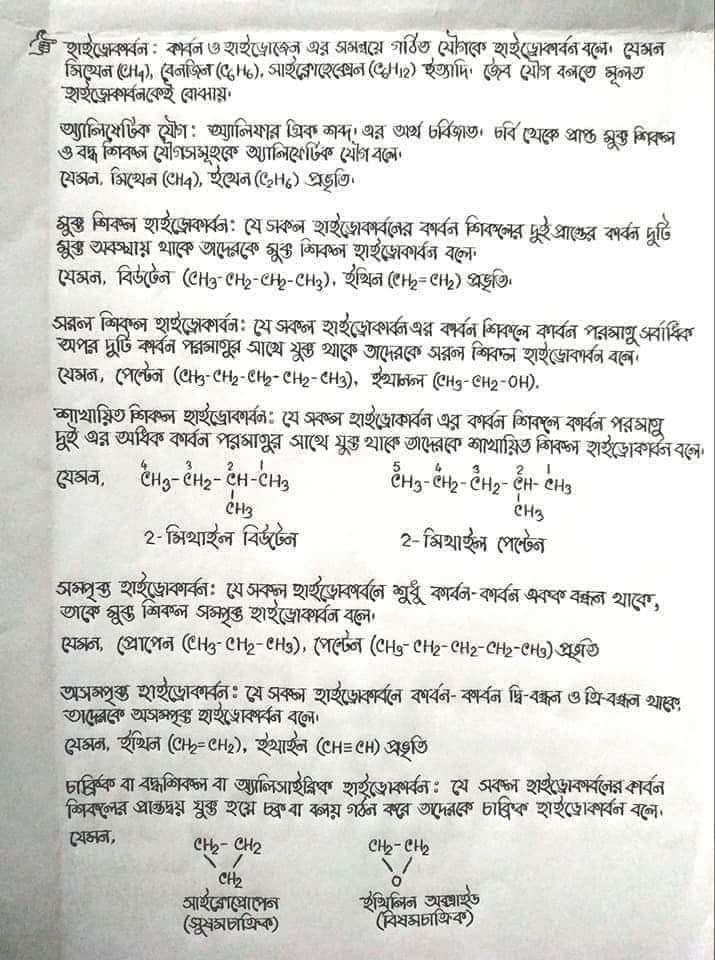 হাইড্রোকার্বন : কার্বন ও হাইড্রোজেন এর সমন্বয়ে গঠিত যৌগকে হাইড্রোকার্বন বলে। যেমন
মিথেন (CH₄), বেনজিন (C₆H₆), সাইক্লোহেক্সেন (C₆H₁₂) ইত্যাদি। জৈব যৌগ বলতে মূলত
হাইড্রোকার্বনকেই বোঝায়।
অ্যালিফেটিক যৌগ : অ্যালিফার গ্রিক শব্দ। এর অর্থ চর্বিজাত। চর্বি থেকে প্রাপ্ত মুক্ত শিকল
ও বদ্ধ শিকল যৌগসমূহকে অ্যালিফেটিক যৌগ বলে।
যেমন, মিথেন (CH₄), ইথেন (C₂H₆) প্রভৃতি।
মুক্ত শিকল হাইড্রোকার্বন: যে সকল হাইড্রোকার্বনের কার্বন শিকলের দুই প্রান্তের কার্বন দুটি
মুক্ত অবস্থায় থাকে তাদেরকে মুক্ত শিকল হাইড্রোকার্বন বলে।
যেমন, বিউটেন (CH₃-CH₂-CH₂-CH₃), ইথিন (CH₂=CH₂) প্রভৃতি।
সরল শিকল হাইড্রোকার্বন: যে সকল হাইড্রোকার্বন এর কার্বন শিকলে কার্বন পরমাণু সর্বাধিক
অপর দুটি কার্বন পরমাণুর সাথে যুক্ত থাকে তাদেরকে সরল শিকল হাইড্রোকার্বন বলে।
যেমন, পেন্টেন (CH₃-CH₂-CH₂-CH₂-CH₃), ইথানল (CH₃-CH₂-OH).
শাখায়িত শিকল হাইড্রোকার্বন: যে সকল হাইড্রোকার্বন এর কার্বন শিকলে কার্বন পরমাণু
দুই এর অধিক কার্বন পরমাণুর সাথে যুক্ত থাকে তাদেরকে শাখায়িত শিকল হাইড্রোকার্বন বলে।
4 3 2 1 5 4 3 2 1
যেমন, CH₃-CH₂-CH-CH₃ CH₃-CH₂-CH₂-CH-CH₃
CH₃ CH₃
2-মিথাইল বিউটেন 2-মিথাইল পেন্টেন
সম্পৃক্ত হাইড্রোকার্বন: যে সকল হাইড্রোকার্বনে শুধু কার্বন-কার্বন একক বন্ধন থাকে,
তাকে মুক্ত শিকল সম্পৃক্ত হাইড্রোকার্বন বলে।
যেমন, প্রোপেন (CH₃-CH₂-CH₃), পেন্টেন (CH₃-CH₂-CH₂-CH₂-CH₃) প্রভৃতি
অসম্পৃক্ত হাইড্রোকার্বন: যে সকল হাইড্রোকার্বনে কার্বন-কার্বন দ্বি-বন্ধন ও ত্রি-বন্ধন থাকে,
তাদেরকে অসম্পৃক্ত হাইড্রোকার্বন বলে।
যেমন, ইথিন (CH₂=CH₂), ইথাইন (CH≡CH) প্রভৃতি
চাক্রিক বা বদ্ধশিকল বা অ্যালিসাইক্লিক হাইড্রোকার্বন: যে সকল হাইড্রোকার্বনের কার্বন
শিকলের প্রান্তদ্বয় যুক্ত হয়ে চক্র বা বলয় গঠন করে তাদেরকে চাক্রিক হাইড্রোকার্বন বলে।
যেমন, CH₂-CH₂ CH₂-CH₂
CH₂ O
সাইক্লোপ্রোপেন ইথিলিন অক্সাইড
(সুষমচাক্রিক) (বিষমচাক্রিক)